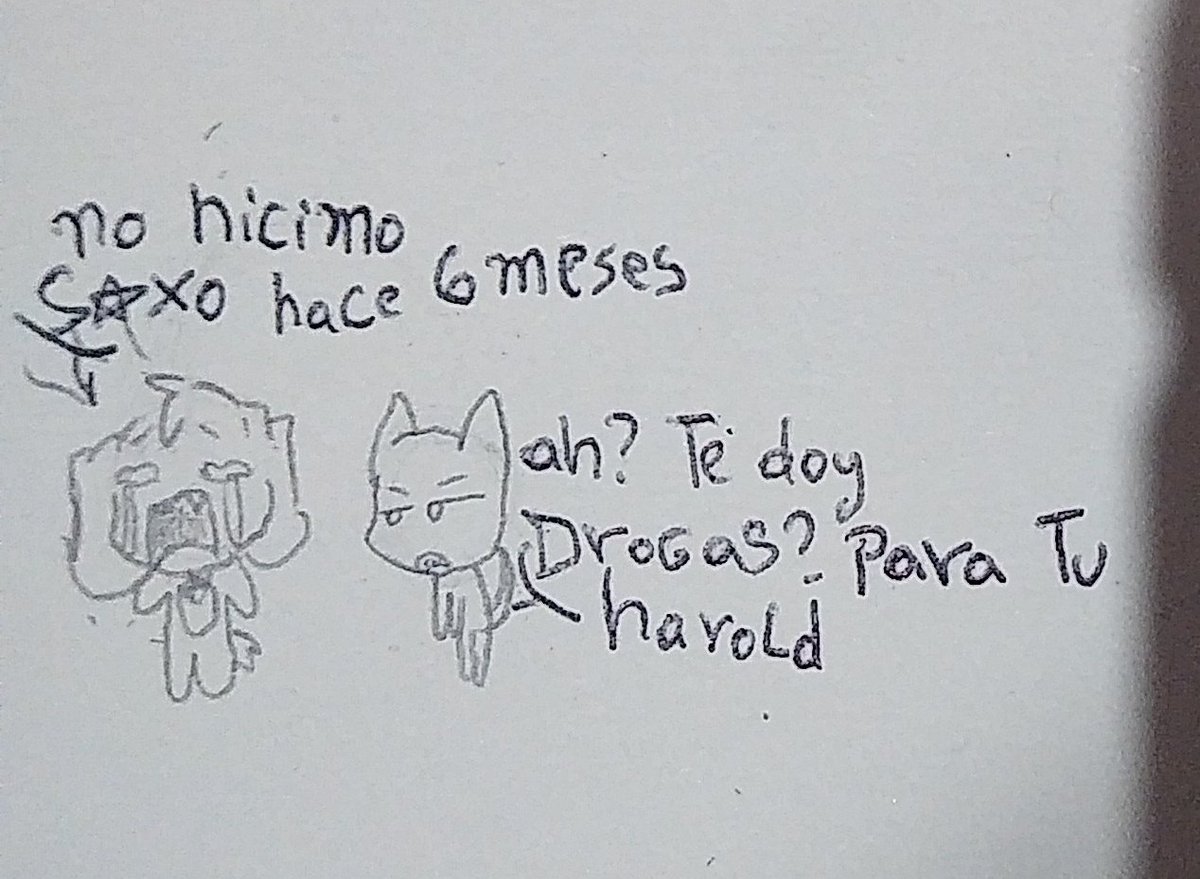 no hicimo
S☆xo hace 6 meses
ah? Te doy
Drogas? para Tu
harold